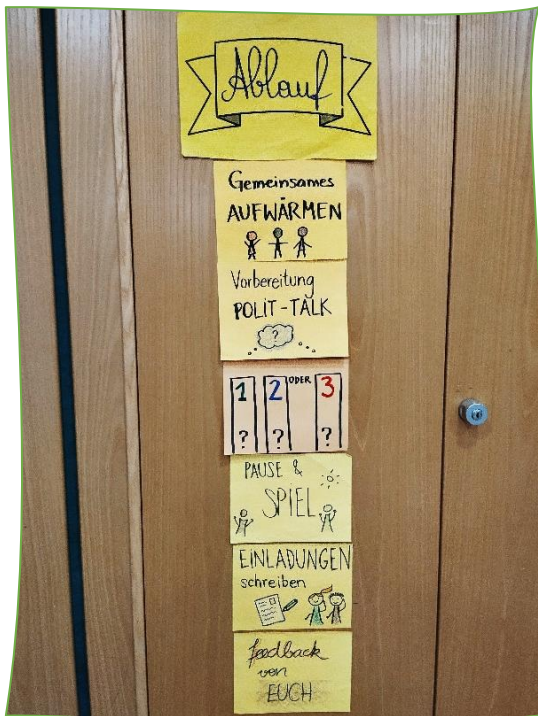 Ablauf
Gemeinsames
AUFWÄRMEN
Vorbereitung
POLIT-TALK
?
1 2 ODER 3
? ? ?
PAUSE &
SPIEL
EINLADUNGEN
schreiben
feedback
von
EUCH